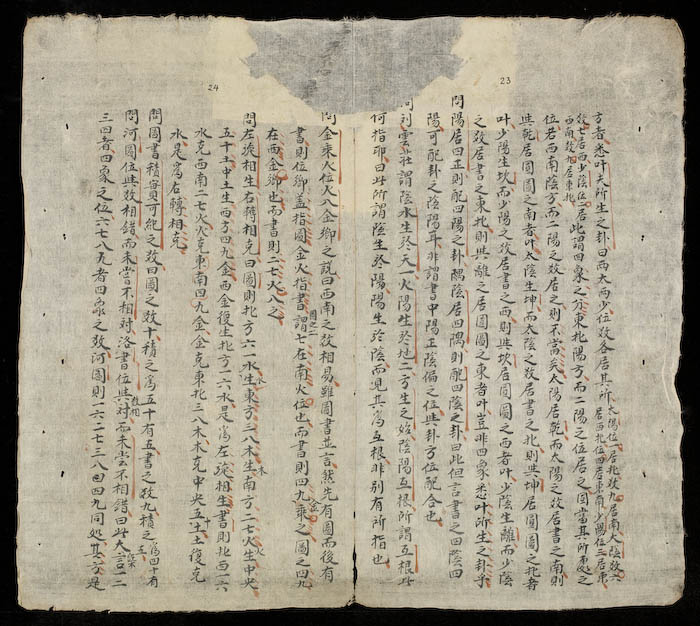 方者悉叶夫所生之卦曰兩太兩少位數各居其所太陽位一居北數九居南太陰數六居西北位四居東南少陽位三居東
數七居西少陰位二居西南數八居東北此謂四象之分東北陽方而二陽之位居之圖當其所處之
位若西南陰方而二陽之數居之則不當矣太陽居乾而太陽之數居書之南則
與乾居圓圖之南者叶太陰生坤而太陰之數居書之北則與坤居圓圖之北者
叶少陽生坎而少陽之數居書之西則與坎居圓圖之西者叶少陰生離而少陰
之數居書之東北則與離之居圓圖之東者叶豈非四象悉叶所生之卦乎
問陽居四正則配四陽之卦隅陰居四隅則配四陰之卦曰此但言書之四陰四
陽可配卦之陰陽耳非謂書中陽正陰偏之位與卦方位配合也
問刘雲莊謂陰水生於天一火陽生於地二方生之始陰陽互根所謂互根此
何指耶曰此所謂陰生於陽陽生於陰而見其為互根非別有所指也
23
24
問金乘火位火入金鄉之說曰西南之數相易雖圖書並言然先有圖而後有
書則位鄉盖指圖金火指書謂圖之二七在南火位也而書則四九金乘之圖之四九
在西金鄉也而書則二七火入之
問左旋相生右轉相克曰圖則北方六一水生東方三八木生南方二七火生中央
五十土中土生西方四九金西金復生北方一六水是為左旋相生書則北西一六
水克西南二七火火克東南四九金金克東北三八木木克中央五十土土復克
水是為右轉相克
問圖書積實可紀之數曰圖之數十積之為五十有五書之數九積之為四十有五
問河圖位與數相錯而未嘗不相對洛書位與數相對而未嘗不相錯曰此大言一二
三四者四象之位六七八九者四象之數河圖則一六二七三八四九同処其方是